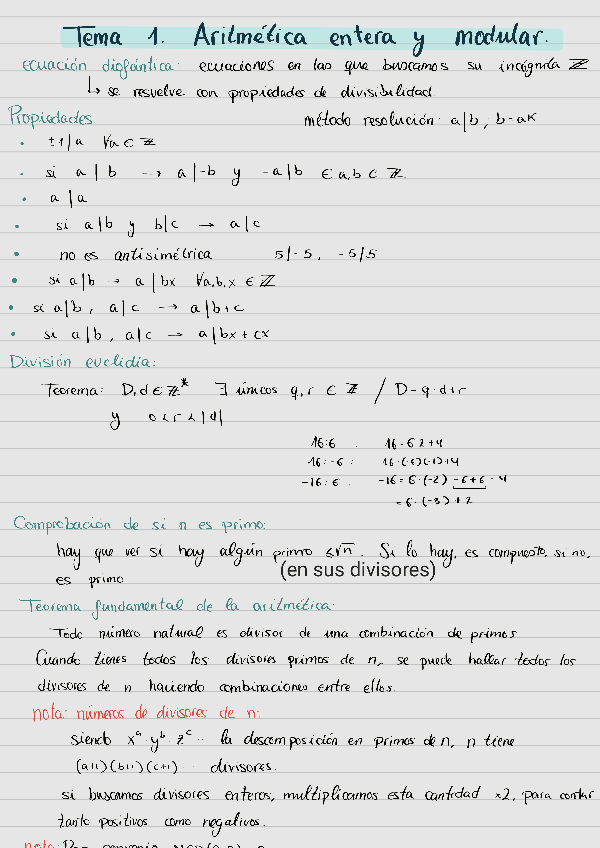 Tema 1. Aritmética entera y modular.
ecuación diofántica: ecuaciones en las que buscamos su incógnita ℤ
↳ se resuelve con propiedades de divisibilidad
Propiedades método resolución: a|b, b=ak
• ±1|a ∀a∈ℤ
• si a|b → a|-b y -a|b ∈ a,b ⊂ ℤ
• a|a
• si a|b y b|c → a|c
• no es antisimétrica 5|-5, -5|5
• si a|b → a|bx ∀a,b,x ∈ ℤ
• si a|b, a|c → a|b+c
• si a|b, a|c → a|bx+cx
División euclidia:
Teorema: D,d∈ℤ* ∃ únicos q,r ⊂ ℤ / D=q·d+r
y 0≤r<|d|
16:6 16=6·2+4
16:-6: 16=(-6)(-1)+4
-16:6: -16=6·(-2) -6+6-4
=6·(-3)+2
Comprobación de si n es primo:
hay que ver si hay algún primo ≤√n. Si lo hay, es compuesto, si no,
(en sus divisores)
es primo
Teorema fundamental de la aritmética:
Todo número natural es divisor de una combinación de primos
Cuando tienes todos los divisores primos de n, se puede hallar todos los
divisores de n haciendo combinaciones entre ellos.
nota: números de divisores de n:
siendo xᵃ·yᵇ·zᶜ·· la descomposición en primos de n, n tiene
(a+1)(b+1)(c+1)·· divisores.
si buscamos divisores enteros, multiplicamos esta cantidad ×2, para contar
tanto positivos como negativos.
nota: Por convenio